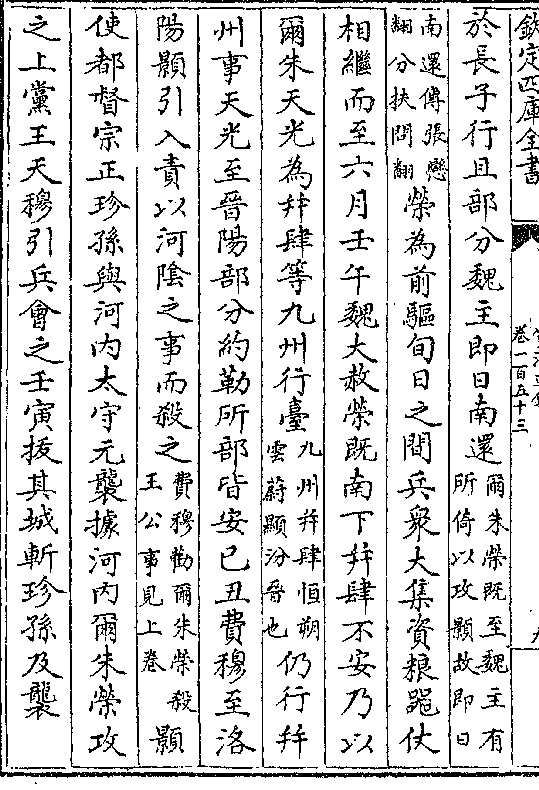 欽定四庫全書
卷一百五十三
於長子行且部分魏主即日南還爾朱榮既至魏主有所倚以攻顥故即日
南還傳張戀翻分扶問翻榮為前驅旬日之間兵衆大集資粮噐仗
相繼而至六月壬午魏大赦榮既南下并肆不安乃以
爾朱天光為并肆等九州行臺九州并肆恒朔雲蔚顯汾晉也仍行并
州事天光至晉陽部分約勒所部皆安己丑費穆至洛
陽顥引入責以河陰之事而殺之費穆勸爾朱榮殺王公事見上卷顥
使都督宗正珍孫與河内太守元襲據河内爾朱榮攻
之上黨王天穆引兵會之壬寅拔其城斬珍孫及襲